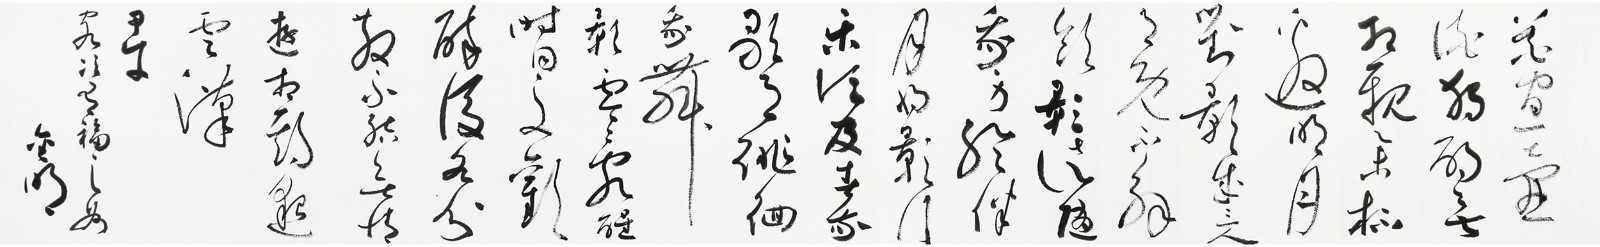 花間一壺
酒獨酌無
相親舉杯
邀明月
對影成三人
月既不解
飲影徒隨
我身暫伴
月將影行
樂須及春我
歌月徘徊
我舞
影零亂醒
時同交歡
醉後各分
散永結無情
遊相期邈
雲漢
金明